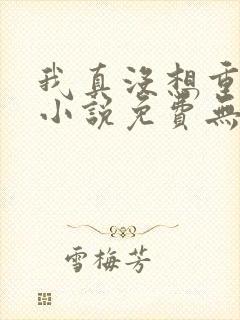 我真沒想重
小說免費無
雪梅芳